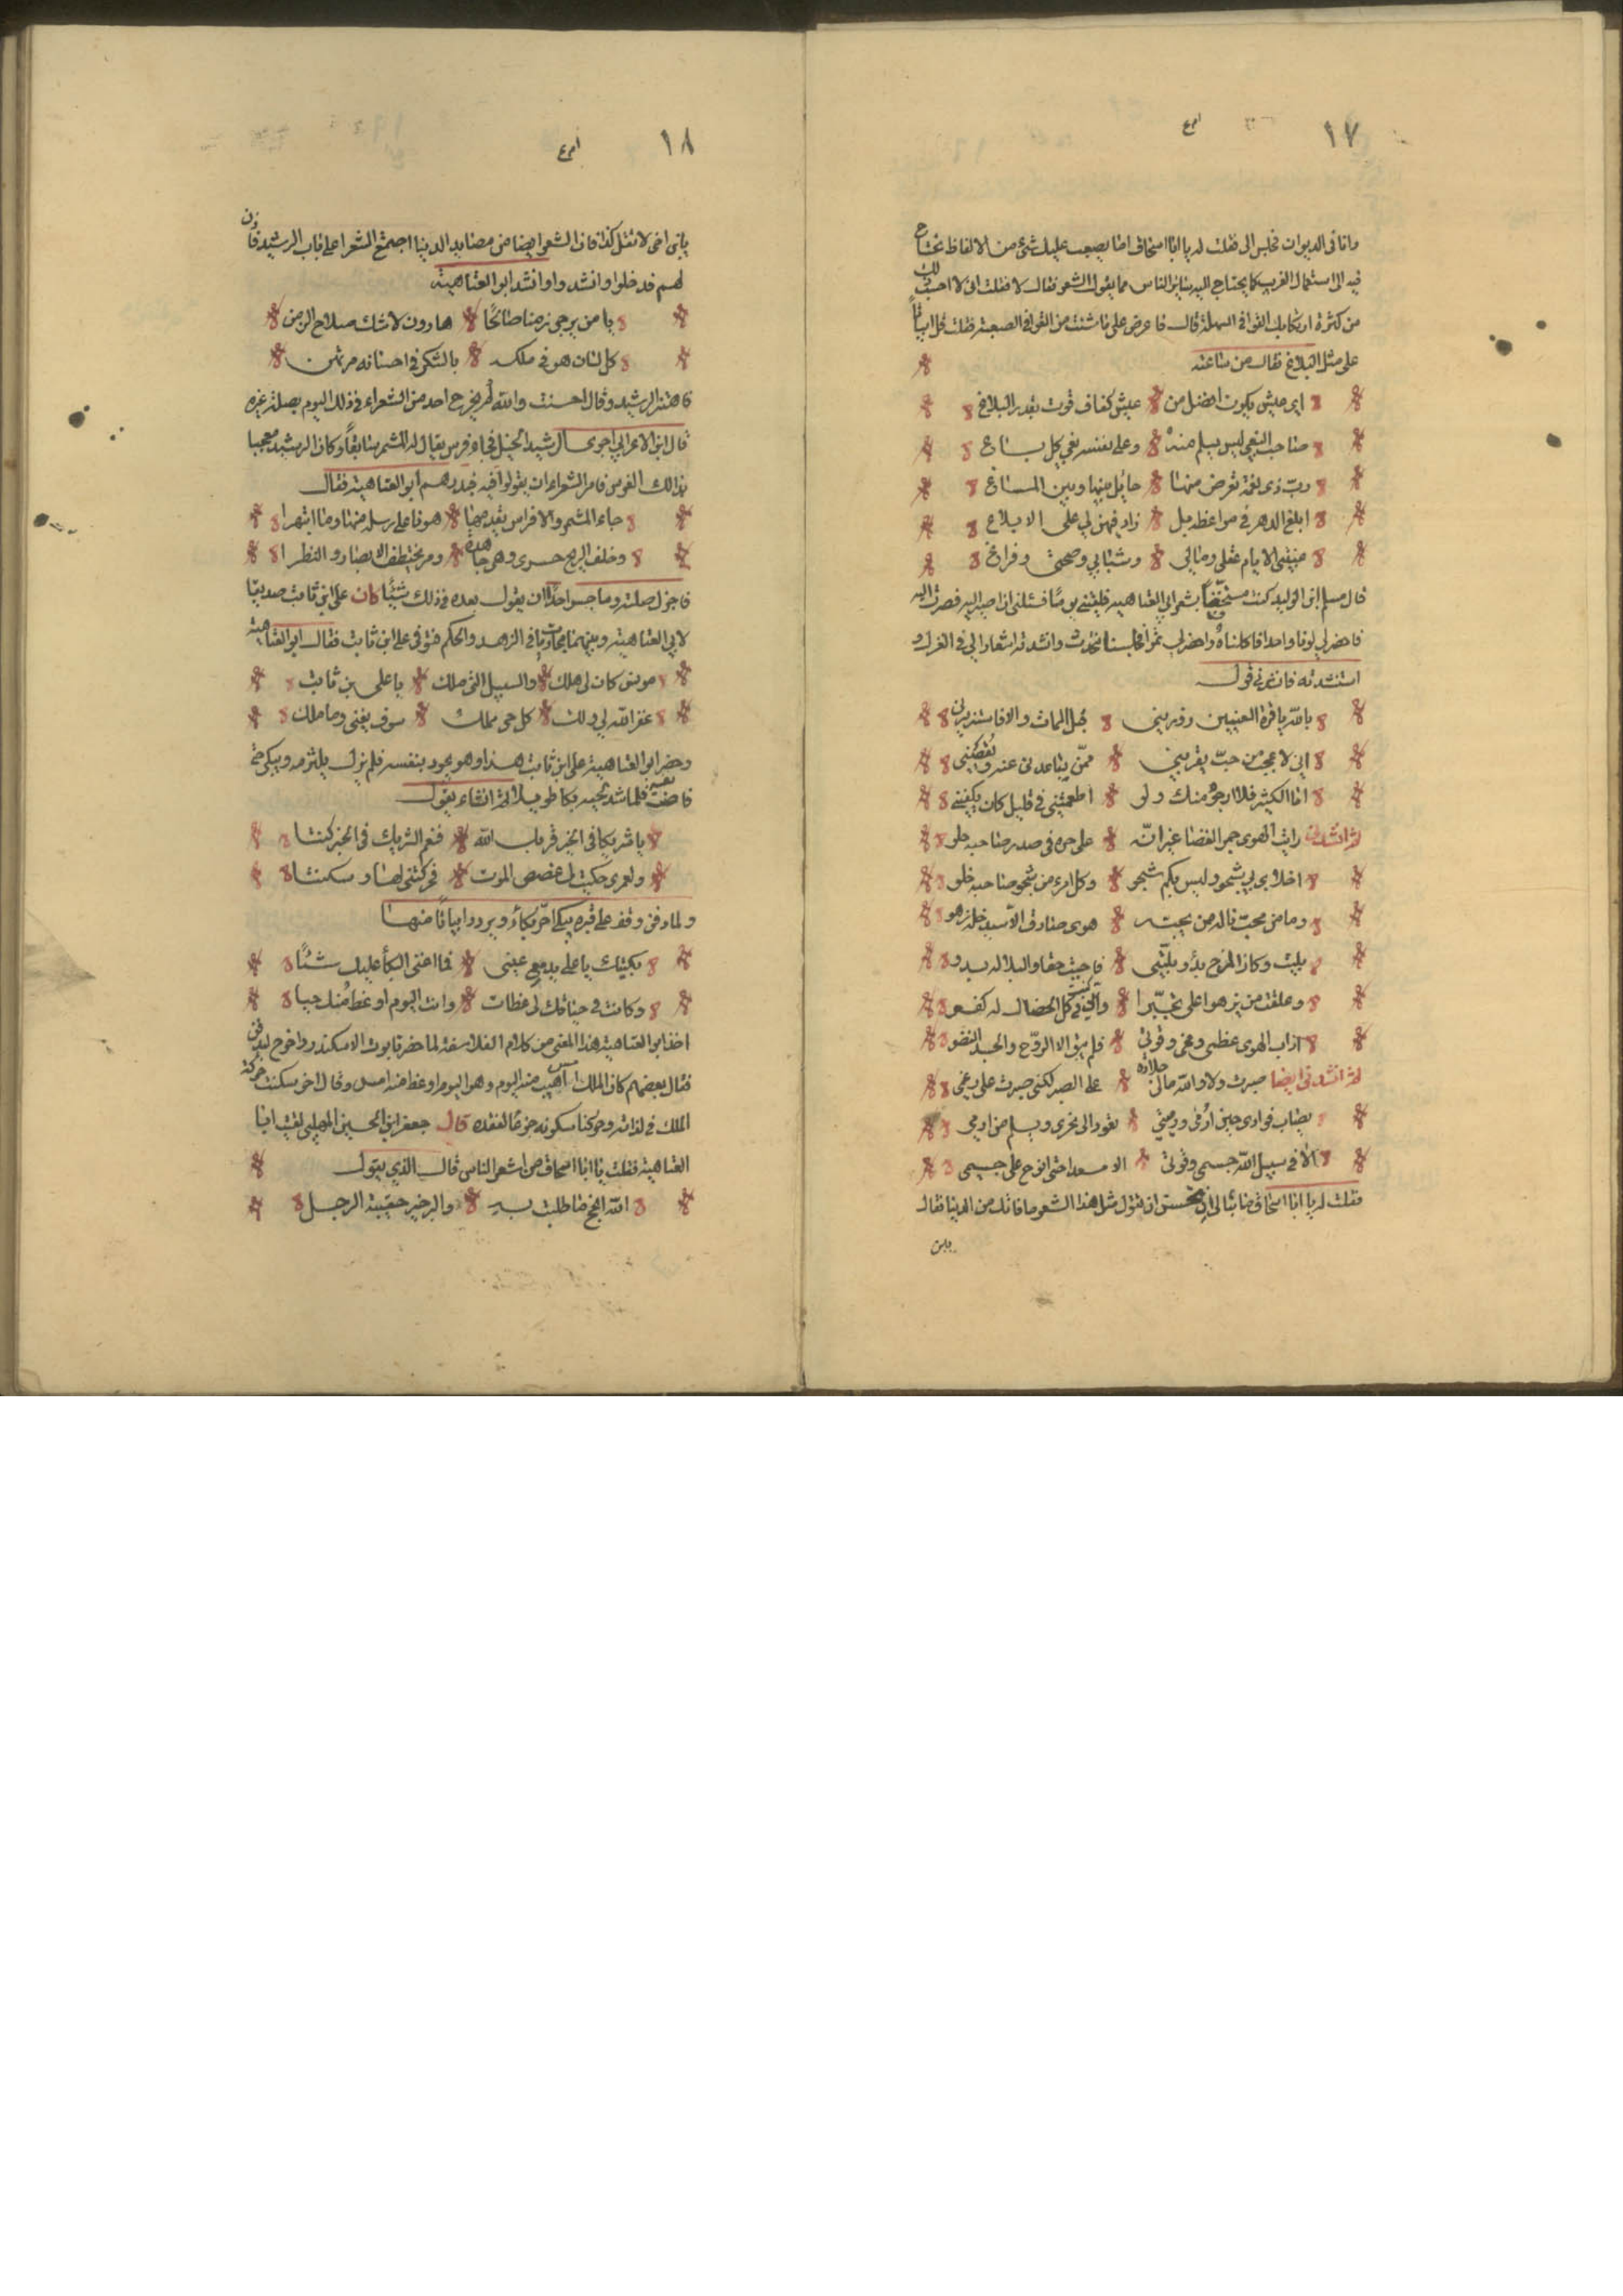 ١٧
وانا فى الديوان فجلس الى فقلت له يا ابا اسحاق اما يصعب عليك شئ من الالفاظ تحتاج
فيه الى استعمال الغريب كما يحتاج اليه سائر الناس مما يقول الشعر فقال لا فقلت انى لاحسب ذلك
من كثرة اركابك القوافى السهلة قال فاعرض على ما شئت من القوافى الصعبة فقلت قل ابياتاً
على مثل البلاغ فقال من ساعته
اى عيش يكون افضل من عيش كفاف قوت بقدر البلاغ
صاحب البغى ليس يسلم منه وعلى نفسه بغى كل باغ
رب ذى نعمة تعرض منها حائل بينها وبين المساغ
ابلغ الدهر فى مواعظه بل زاد فيهن لى على الابلاغ
الايام عقلى ومالى وشبابى وصحتى وفراغ
قال مسلم ابن الوليد كنت بشعر ابى العتاهية فلقيني يوماً فسئلنى ان اصير اليه فصرت اليه
فاحضر لى لونا واحدا فاكلناه واحضر لى تمرا فجلسنا نتحدث وانشدته اشعارا لى فى الغزل و
استنشدته فانشدنى قول
بالله يا قرة العينين زورينى قبل الممات والا فاستزيرنى
انى لاعجب من حب يقربنى ممن يباعدنى عنه ويقصينى
اما الكثير فلا ارجوه منك ولو اطمعتنى فى قليل كان يكفينى
ثم انشدنى رايت الهوى جمر الغضا غير انّه على حره فى صدر صاحبه حلو
اخلاى بى شجو وليس بكم شجو وكل امرء من شجو صاحبه خلو
وما من محب نال من يحبه هوى صادقا الا سيدخله زهو
بليت وكان المزح بدؤ بليّتى فاحببت حقا والبلا له بدو
وعلقت من يزهوا على تجبّرا وانى فى كل الخصال له كفو
اذاب الهوى عظمى ومخى وقوتى فلم يبق الا الروح والجسد النضو
ثم انشدنى ايضا صبرت ولا والله مالى جلادة على الصبر لكنى صبرت على رغمى
يصاب فوادى حين ارمى ورميتى تعود الى نحرى ويسلم من ارمى
الا فى سبيل الله جسمى وقوتى الا مسعدا حتى انوح على جسمى
فقلت له يا ابا اسحاق ما يبالى من تحسن ان يقول مثل هذا الشعر ما فاته من الدنيا فقال
١٨
يا بنى اخى لا تقل كذا فان الشعر ايضا من مصايد الدنيا اجتمع الشعرا على باب الرشيد فاذن
لهم فدخلوا وانشدوا وانشد ابو العتاهية
يا من يرجى زمنا صالحًا هارون لا شك صلاح الزمن
كل لسان هو فى ملكه بالشكر فى احسانه مرتهن
فاهتز الرشيد وقال احسنت والله لم يخرج احد من الشعراء فى ذلك اليوم بصلة غيره
قال ابن الاعرابى اجرى الرشيد الخيل فجاء فرس يقال له المشمر سابقاً وكان الرشيد معجبا
بذالك الفرس فامر الشعراء ان يقولوا فيه فبدرهم ابو العتاهية فقال
جاء المشمر والافراس يقدمها هونا على رسله منها وما انتهرا
وخلف الريح حسرى وهى جاهدة ومر يختطف الابصار والنظرا
فاجزل صلته وما جسر احداً ان يقول بعده فى ذلك شيئاً كان على ابن ثابت صديقا
لابى العتاهية وبينهما مجاوبات فى الزهد والحكم فتوفى على ابن ثابت فقال ابو العتاهية
مونس كان لى هلك والسبيل التى سلك يا على بن ثابت
غفر الله لى ولك كل حى مملك سوف يفنى وما ملك
وحضر ابو العتاهية على ابن ثابت هذا وهو يجود بنفسه فلم يزل يلتزمه ويبكى حتى
فاضت نفسه فلما شد لحييه بكا طويلا ثم انشاء يقول
يا شريكى فى الخير قربك الله فنعم الشريك فى الخير كنتا
ولعمرى حكيت لى غصص الموت فحركتنى لها وسكنتا
ولما دفن وقف على قبره يبكى احر بكاء ويردد ابياتا منها
بكيتك يا على بدمع عينى فما اغنى البكأ عليك شئاً
وكانت فى حياتك لى عظات وانت اليوم اوعظ منك حيا
اخذ ابو العتاهية هذا المعنى من كلام الفلاسفة لما حضر تابوت الاسكندر واخرج ليدفن
فقال بعضهم كان الملك امس اهيب منه اليوم وهو اليوم اوعظ منه امس وقال اخر سكنت حركة
الملك فى لذاته وحركنا سكونه جزعا لفقده قال جعفر ابن الحسين المهلبى لقيت ابا
العتاهية فقلت يا ابا اسحاق من اشعر الناس قال الذى يقول
الله انجح ما طلبت به والبر خير حقيبة الرجل